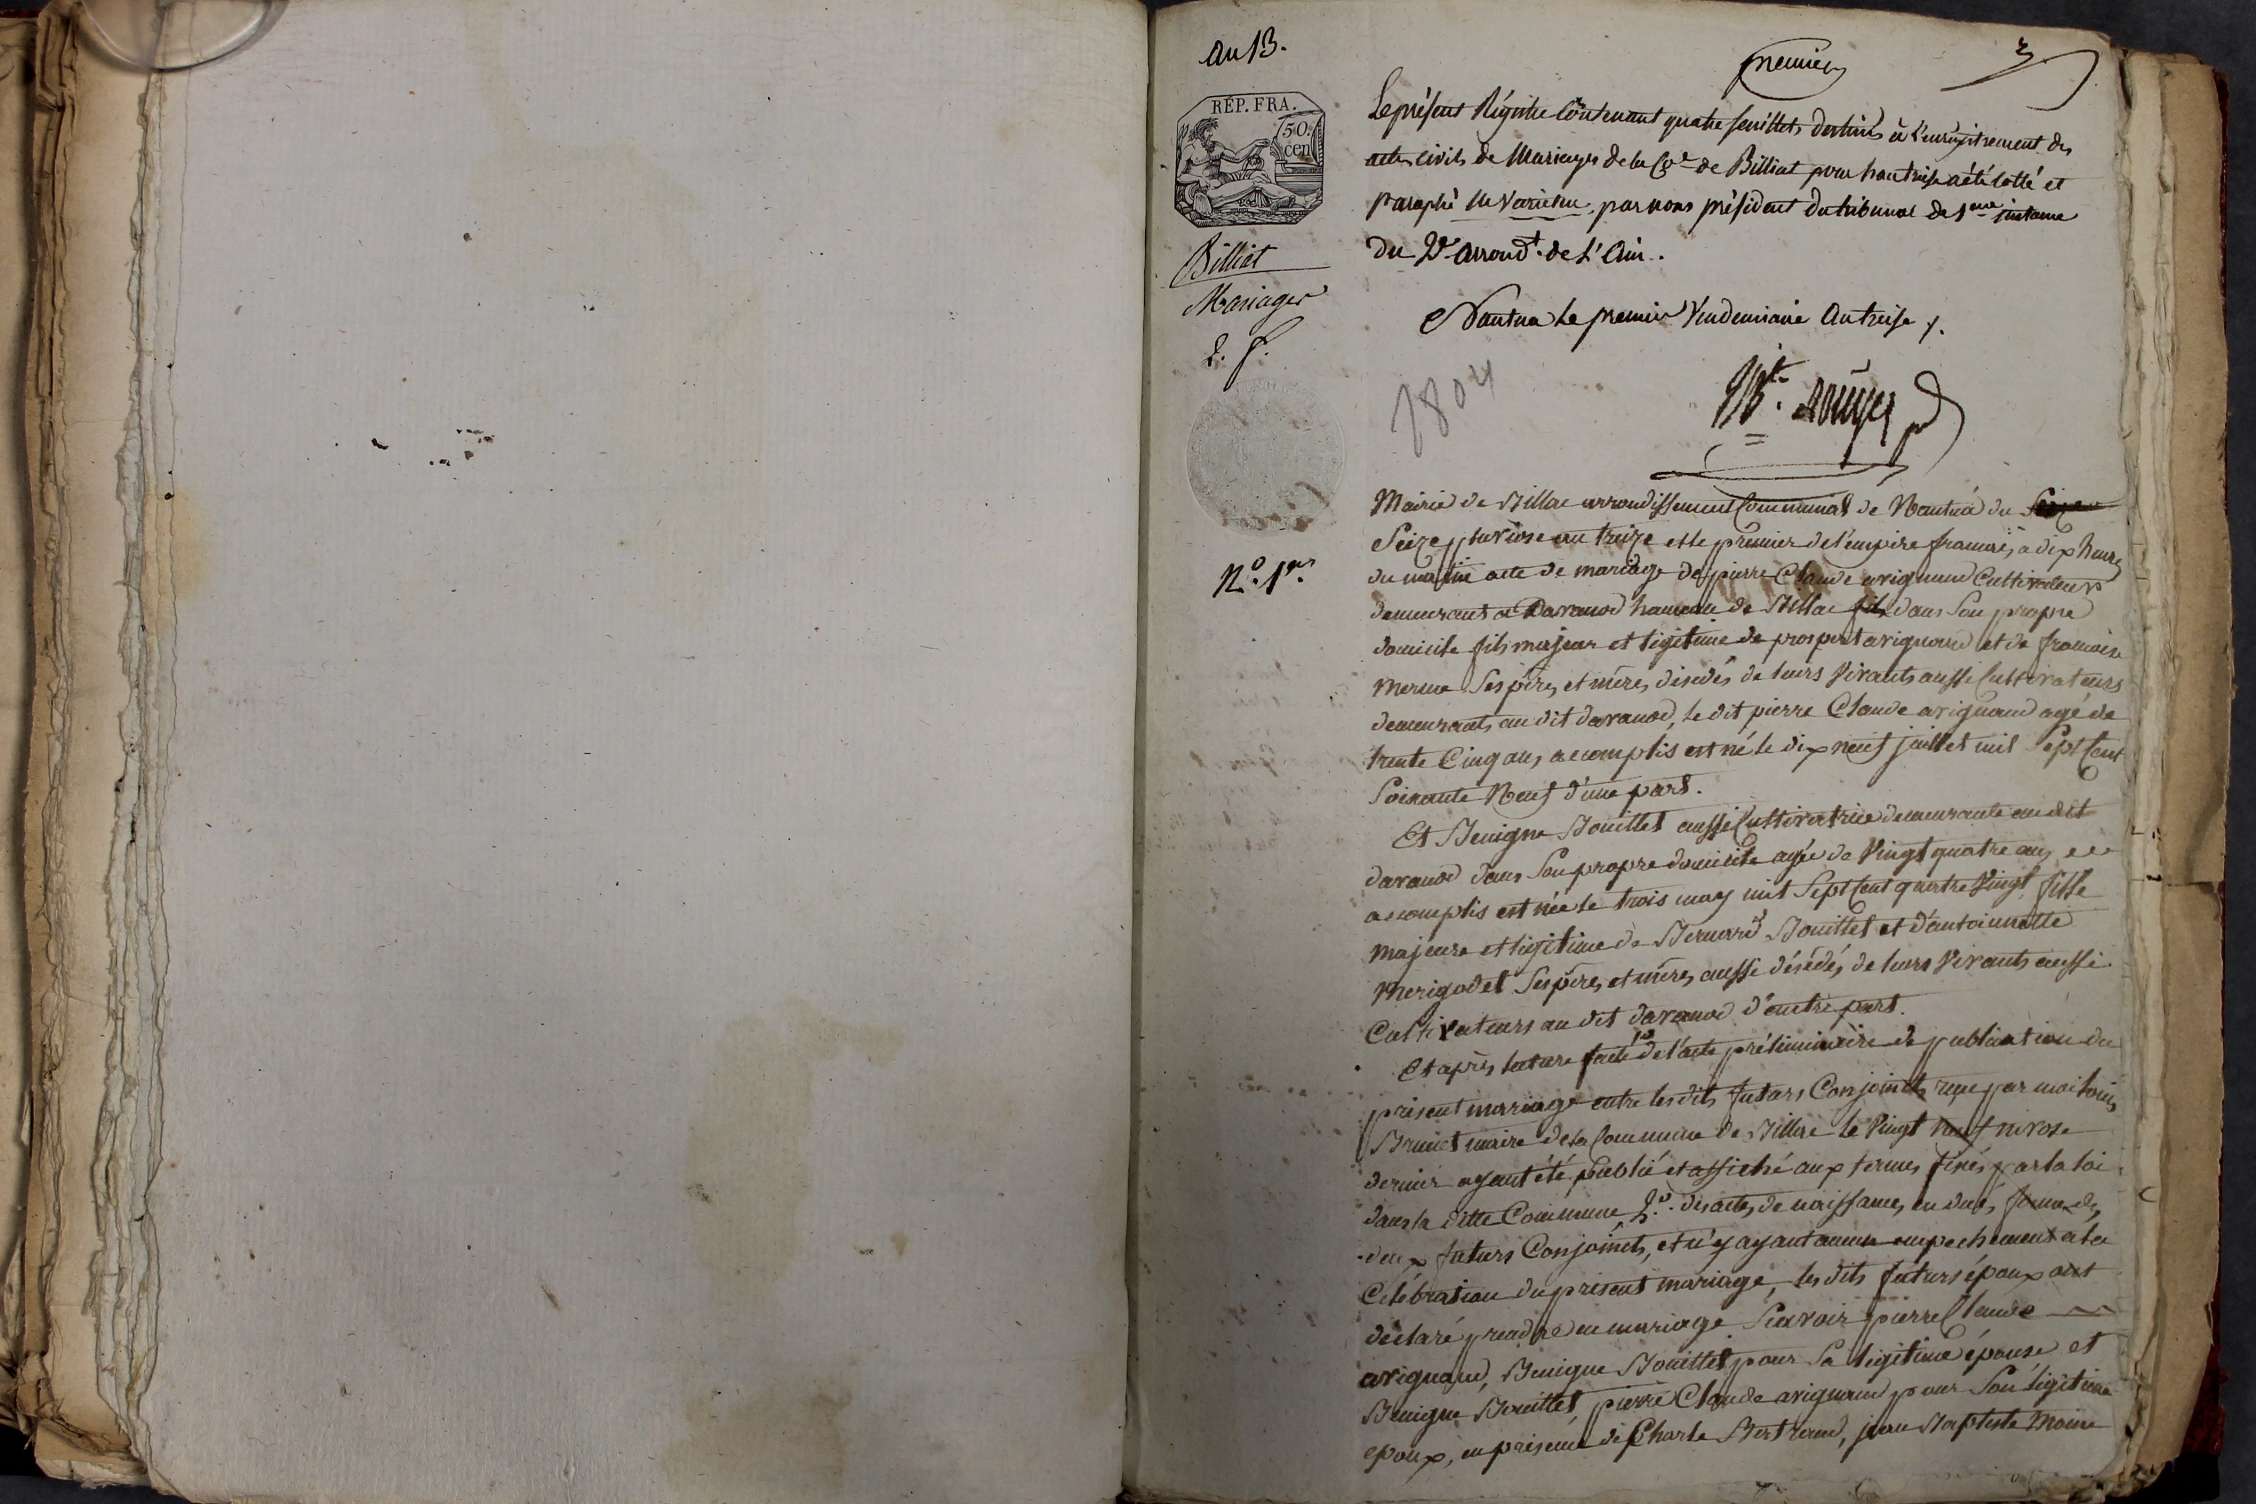 an 13.
premier
3
RÉP. FRA.
50.
cen
Le présent Régistre Contenant quatre feuillets destinés à L'enregistrement des
actes civils de Mariages de la Cne de Billiat pour l'an treise a été Cotté et
Paraphé ne Varietur, par nous président du tribunal de 1ere instance
du 2e arrondt. de L'Ain.
Billiat
Mariages
2. f.
Nantua le premier Vendemiaire an treise /.
1804
N.o 1er
Mairie de Billac arrondissement Communal de Nantua du Seize
Seize pluviose an treize et le premier de l'empire francais, a dix heures
du matin acte de mariage de pierre Claude avignand Cultivateur
demeurant a Davanod hameau de Billac fils dans Son propre
domicile fils majeur et légitime de prospert avignand et de francoise
Merme Ses péres et méres, désédés de leurs Vivants aussi Cultivateurs
demeurants au dit davanod, le dit pierre Claude avignand agé de
trente Cinq ans acomplis est né le dix neuf juillet mil Sept Cent
Soixante Neuf d'une part.
Et Benigne Bouillet aussi Cultivatrice demeurante au dit
davanod dans Son propre domicile agée de Vingt quatre ans
acomplis est née le trois may mil Sept Cent quatre Vingt, fille
majeure et légitime de Bernard Bouillet et d'antoinette
Merigodet Ses péres et méres, aussi désédés de leurs Vivants aussi
Cultivateurs au dit davanod d'autre part.
Et aprés lecture faite 1o de l'acte préliminaire de publication du
présent mariage entre les dits futurs Conjoints recue par moi louis
Brunet maire de la Commune de Billac le Vingt neuf nivose
dernier ayant été publié et affiché aux termes fixés par la loi
dans la ditte Commune 2.o des actes de naissances, en dues formes des
deux futurs Conjoints, et n'y ayant aucun empechement a la
Celébration du présent mariage, les dits futurs époux ont
déclaré prendre en mariage Scavoir pierre Claude
avignand, Benigne Bouillet pour Sa légitime épouse et
Benigne Bouillet pierre Claude avignand pour Son légitime
epoux, en présence de Charle Bertrand, jean Baptiste Moine